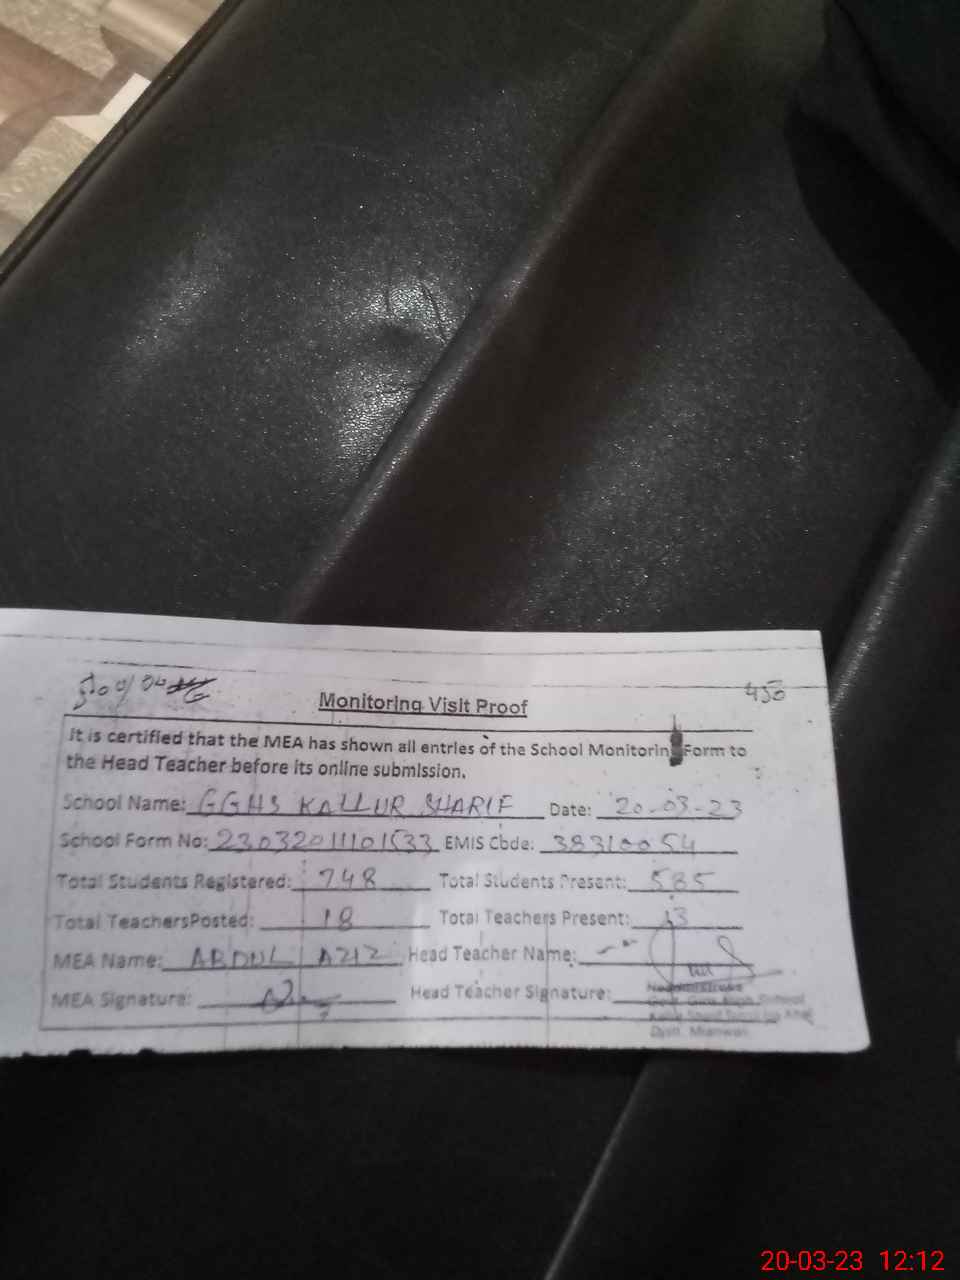 450
Monitoring Visit Proof
It is certified that the MEA has shown all entries of the School Monitoring Form to
the Head Teacher before its online submission.
School Name: GGHS KALLUR SHARIF Date: 20-03-23
School Form No: 23032011101533 EMIS Code: 38310054
Total Students Registered: 748 Total Students Present: 585
Total TeachersPosted: 18 Total Teachers Present: 13
MEA Name: ABDUL AZIZ Head Teacher Name:
MEA Signature: Head Teacher Signature:
Headmistress
Govt. Girls High School
Distt. Mianwali
20-03-23 12:12